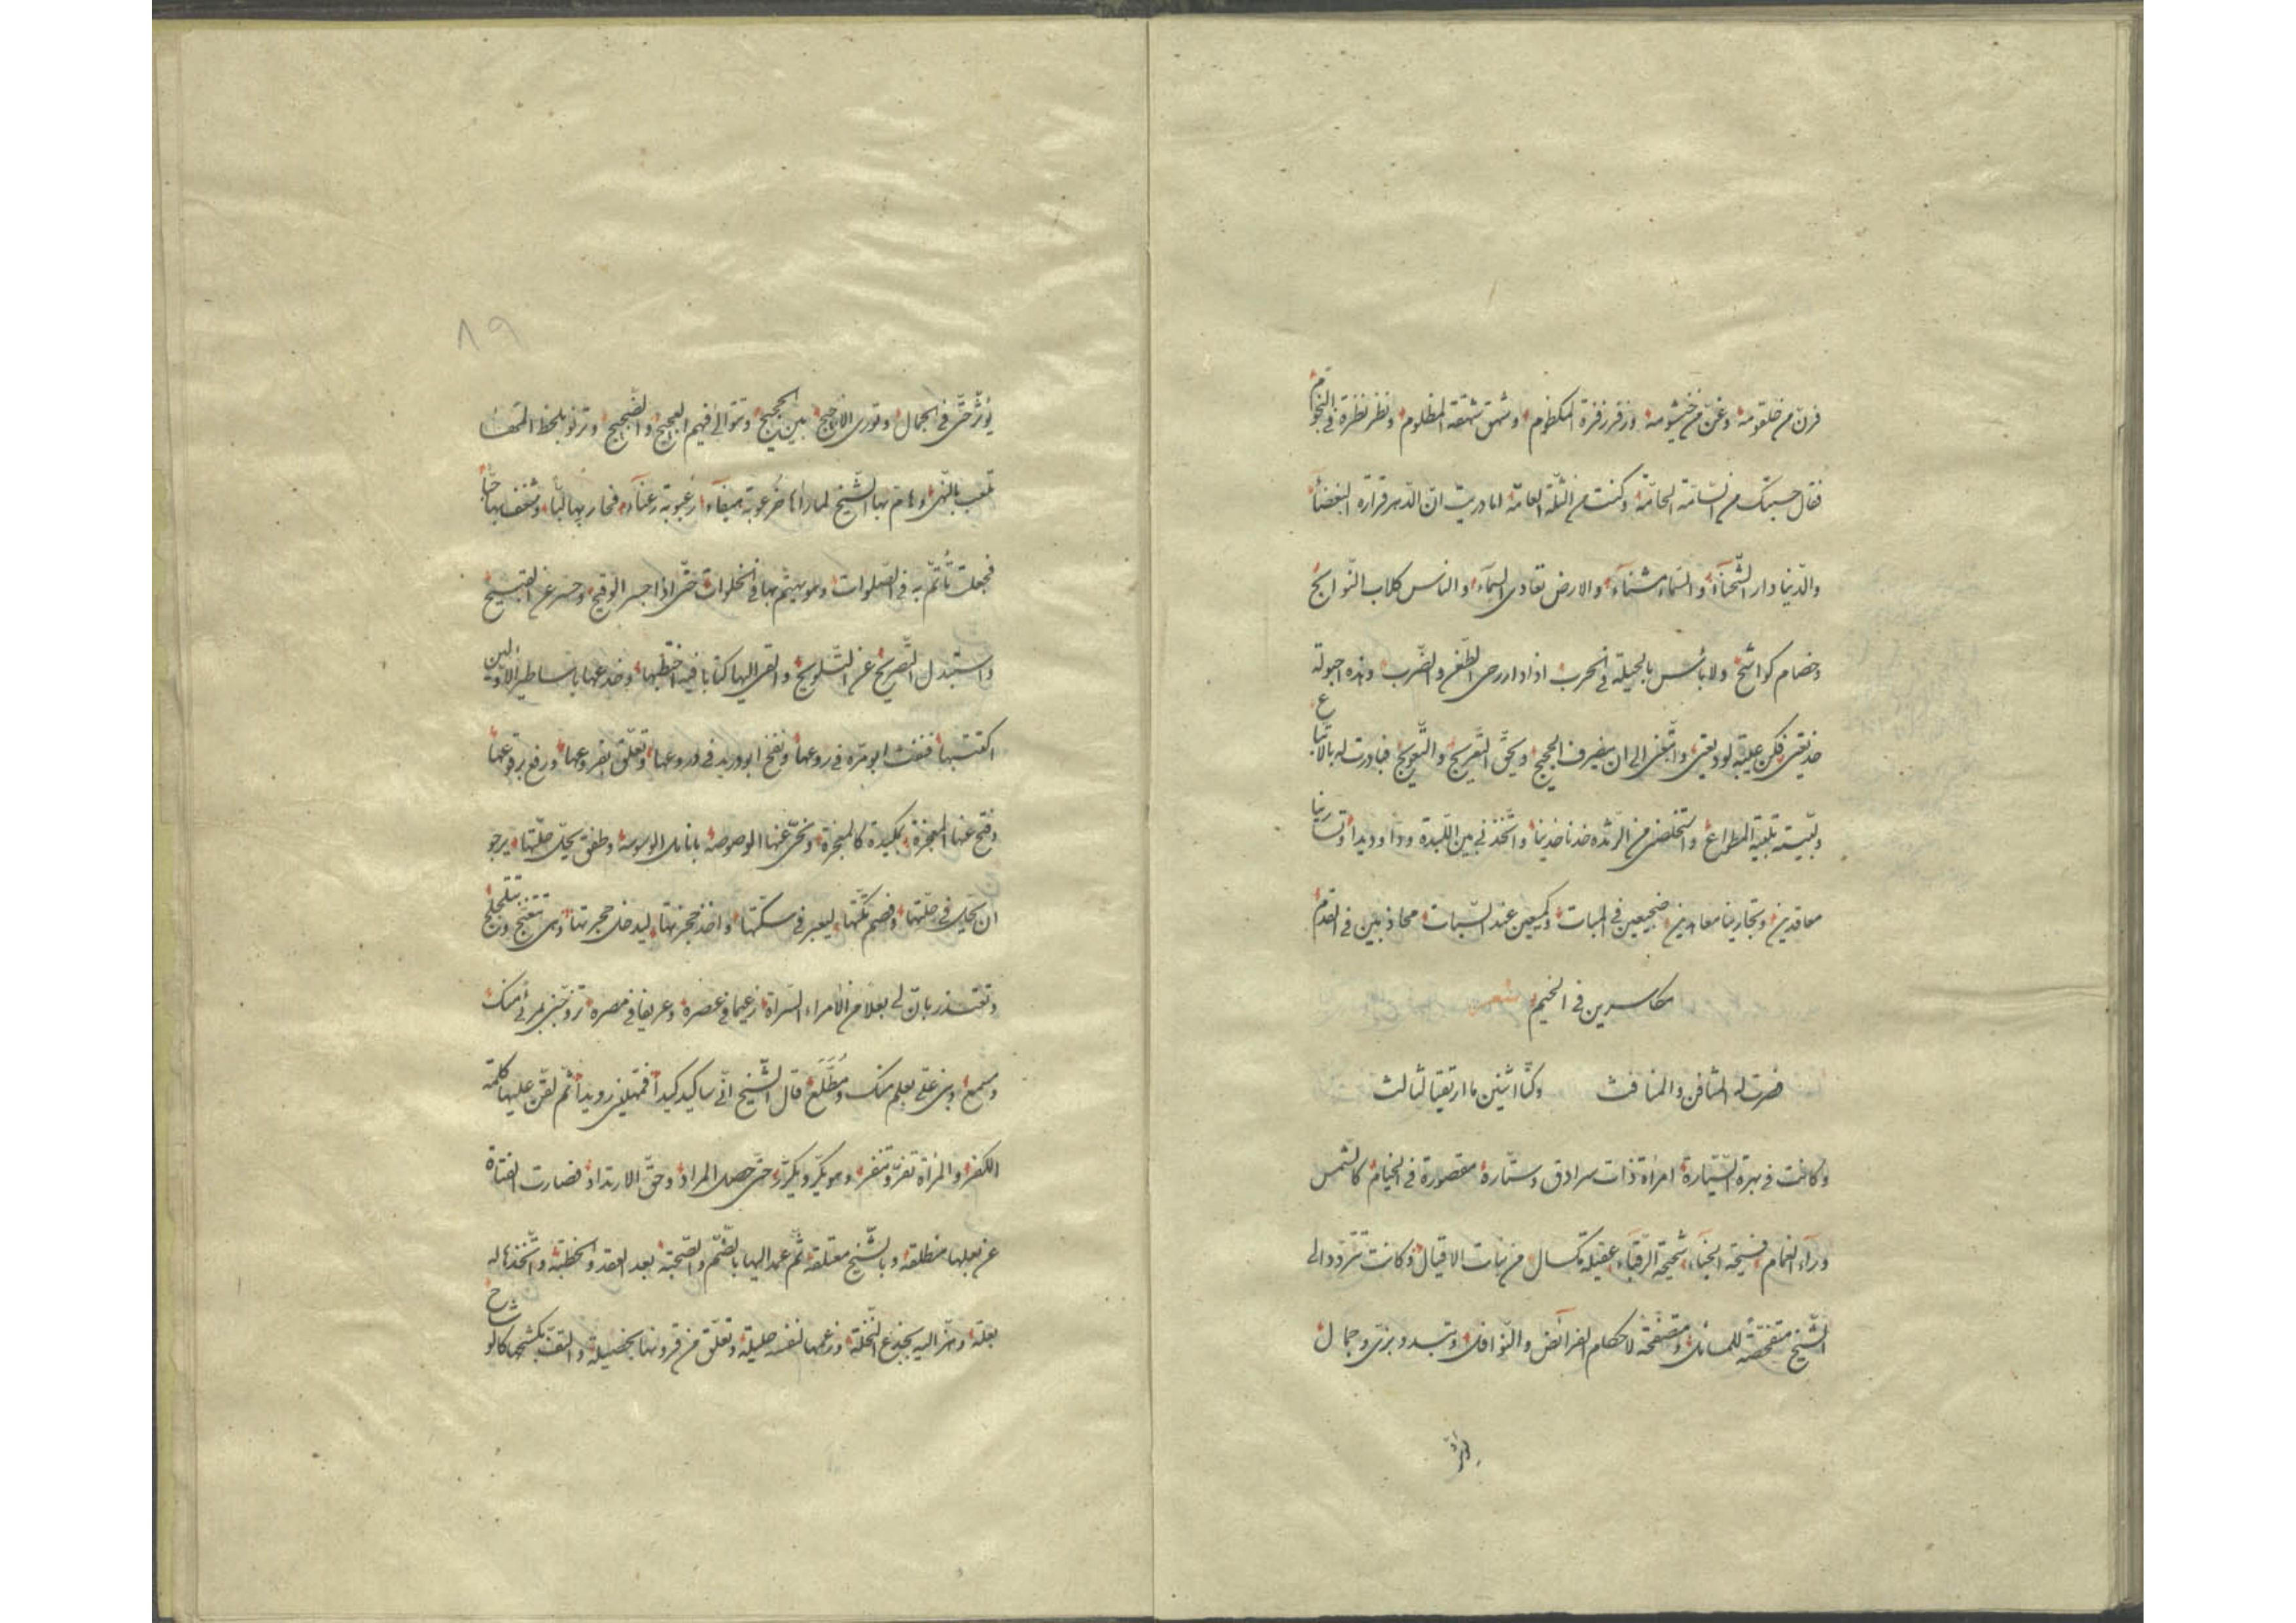 فرنّ من حلقومه وغنّ من خيشومه وزفر زفرة المكظوم وشهق شهقة المظلوم ونظر نظرة فى النجوم
فقال حسبتك من السّامّة الحامّة وكنت من الثلّة العامّة اما دريت انّ الدّهر قرارة البغضآء
والدّنيا دار الشّحنآء والسّماء شنآء والارض تعادى السمآء والناس كلاب النّوابح
وخصام كواشح ولا بأس بالحيلة فى الحرب اذا دار رحى الطّعن والضّرب وهذه اجولة
خديعتى فكن عيبة لوديعتى واتّبعنى الى ان ينصرف الحجيج ويحقّ التّعريج والتّعويج فبادرت له بالاتّباع
ولبّيته تلبية المطواع واستخلصنى من الرّثدة خدنا خدينا واتّخذنى بين اللّبدة ودّا ووديدا وتسارينا
معاقدين وتجارينا معاهدين ضجيعين فى المبات وكميعين عند السّبات محاذبين فى القدم
مكاسرين فى الخيم شعر
فصرت له المثافن والمنافث وكنّا اثنين ما ارتقيا لثالث
وكانت فى بهرة السّيّارة امرأة ذات سرادق وستارة مقصورة فى الخيام كالشمس
ورآء الغمام فسيحة الخبآء شحيحة الرّقبآء عقيلة مكسال من بنات الاقيال وكانت تتردّد الى
الشّيخ متفحّصة للمسائل ومتصفّحة لاحكام الفرائض والنّوافل وتبدو بزىّ وجمال
يؤثّر حتّى فى الجمال وتورى الاجيج بين الحجيج وتتوالى فيهم العجيج والضّجيج وترنو بلحظ المها
تلعب بالنّهى وهام بها الشّيخ لما رآها خرعوبة هيفآء رعبوبة رعنآء فحار بها لبّا وشغف بها حبّا
فجعلت تأتمّ به فى الصّلوات وهو يهتمّ بها فى الخلوات حتّى اذا جسر الوقيح وحسر عن القبيح
واستبدل التّصريح عن التّلويح والقى اليها كتابا فيه اختطبها وخدعها باساطير الاوّلين
اكتتبها فنفث ابو مرّة فى روعها ونفخ ابو دريد فى دروعها وتعلّق بفروعها ورفع برقوعها
وفتح عنها المعجزة بمكيدة كالمعجزة ونحّى عنها الوصوصة بانامل الوسوسة وطفق يحلّ حلّتها يرجو
ان يحلّ فى حلّتها وفصم تكّتها ليعبر فى سكّتها واخذ حجزتها ليدخل حجرتها وهى تتغنّج وتتلجلج
وتعتذر بانّ لى بعلا من الأمراء السّراة زعيما فى عصره وعريفا فى مصره تزوّجنى بمرأى منك
ومسمع وبنى علىّ بعلم منك ومطّلع قال الشّيخ انّى ساكيد كيدا فمهّلينى رويدا ثم لقّن عليها كلمة
الكفر والمرأة تفرّ وتنفر وهو يكرّ ويكرّر حتّى حصل المراد وحقّ الارتداد فصارت الفتاة
عن بعلها مطلقة وبالشّيخ معتلقة ثمّ عمد اليها بالضّمّ والصّحبة بعد العقد والخطبة واتّخذها له
بعلة وهزّ اليه بجذع النّخلة وزعمها لنفسه حليلة وتعلّق من قرونها بخصيلة والتفّ بكشحها كالوشاح